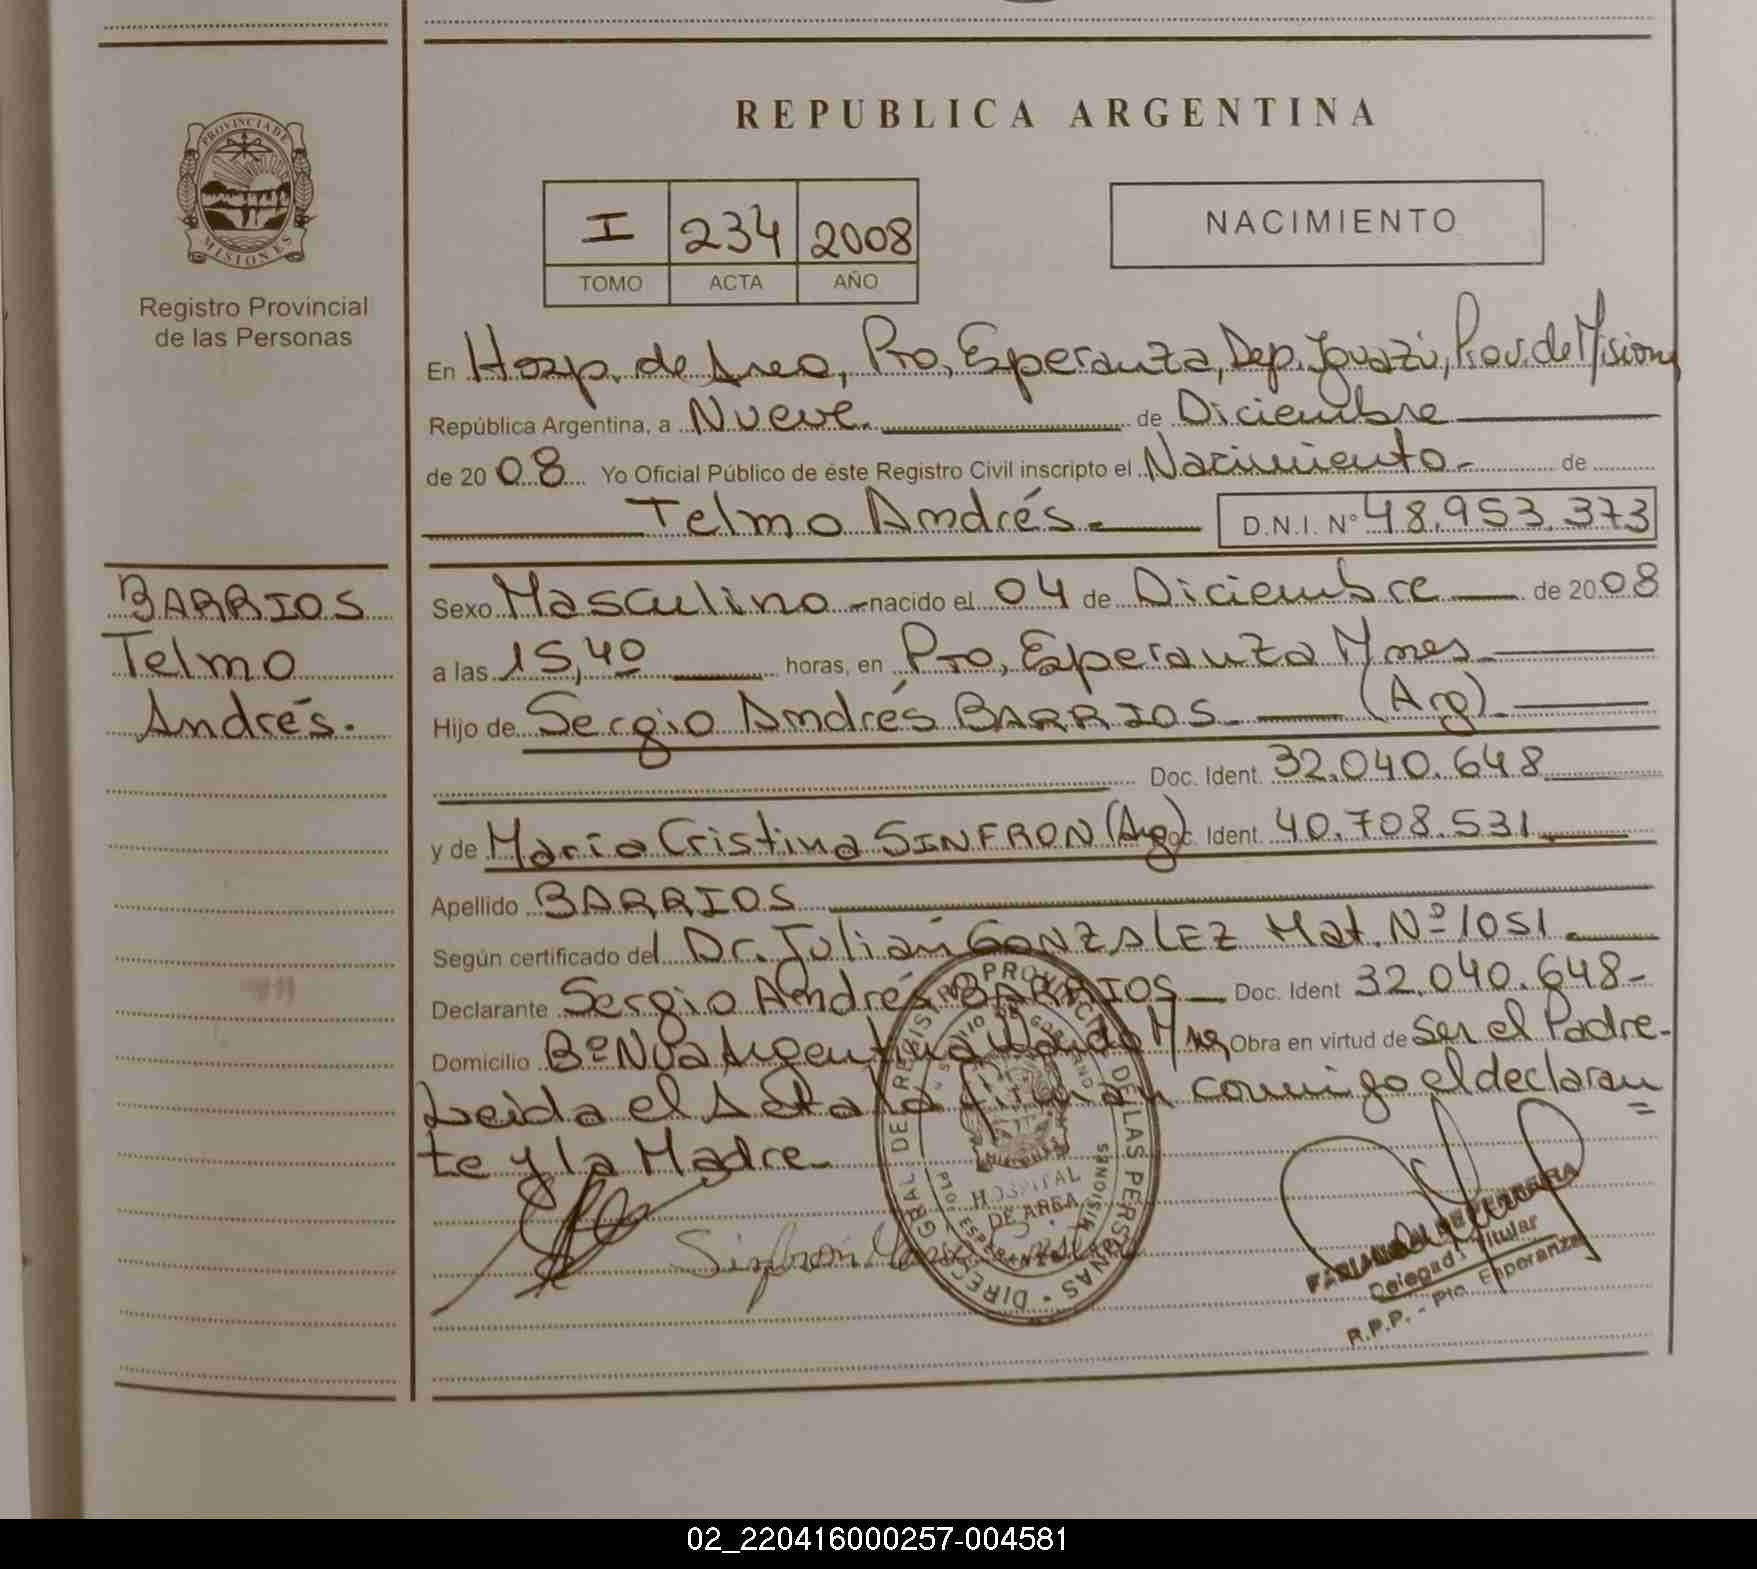 REPUBLICA ARGENTINA
PROVINCIA DE
MISIONES
Registro Provincial
de las Personas
I 234 2008
TOMO ACTA AÑO
NACIMIENTO
En Hosp. de Area, Pto, Esperanza, Dep. Iguazú, Prov. de Misiones
República Argentina, a Nueve. de Diciembre
de 2008 Yo Oficial Público de éste Registro Civil inscripto el Nacimiento- de
Telmo Andrés- D.N.I. Nº 48.953.373
BARRIOS
Telmo
Andrés.
Sexo Masculino - nacido el 04 de Diciembre de 2008
a las 15,40 horas, en Pto, Esperanza Mnes-
Hijo de Sergio Andrés BARRIOS- (Arg)-
Doc. Ident. 32.040.648
y de María Cristina SINFRON (Arg) Doc. Ident. 40.708.531
Apellido BARRIOS
Según certificado del Dr. Julián GONZALEZ Mat. Nº 1051
Declarante Sergio Andrés BARRIOS Doc. Ident 32.040.648-
Domicilio Bº Nva Argentina Wanda Mnes Obra en virtud de Ser el Padre-
Leida el Acta la firman conmigo el declaran=
te y la Madre-
Sinfron Maria Cristina
REGISTRO PROVINCIAL DE LAS PERSONAS
HOSPITAL
DE AREA
Delegado Titular
R.P.P. - Pto. Esperanza
02_220416000257-004581